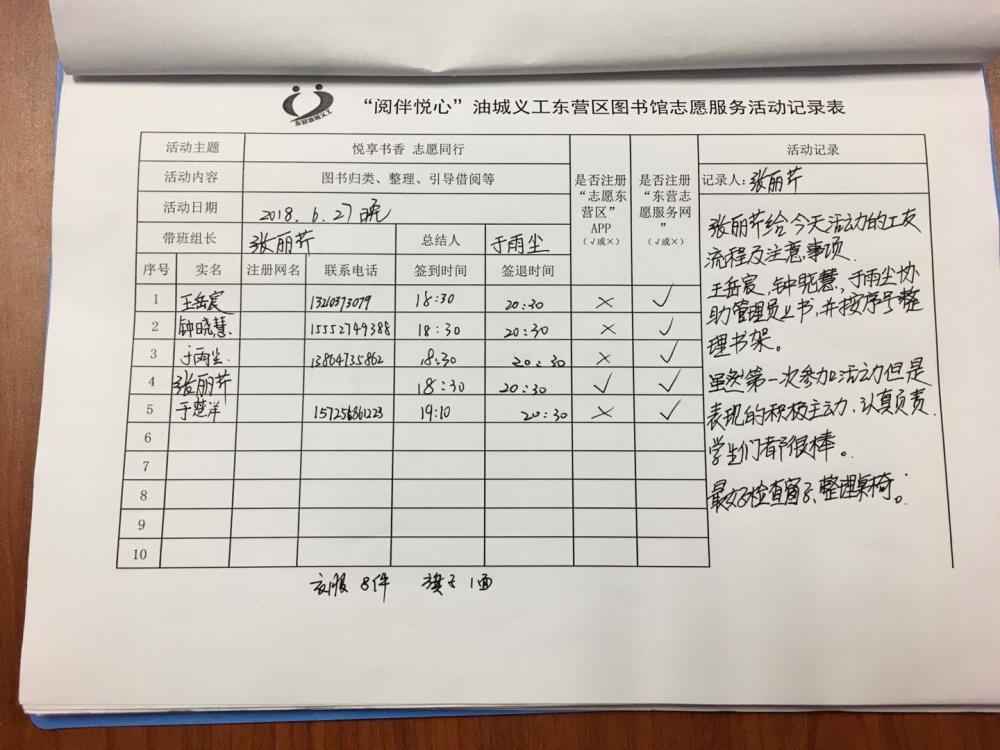 东营油城义工
“阅伴悦心”油城义工东营区图书馆志愿服务活动记录表
活动主题 悦享书香 志愿同行
活动内容 图书归类、整理、引导借阅等
活动日期 2018.6.27晚
带班组长 张丽芹 总结人 于雨尘
是否注册“志愿东营区”APP（√或×）
是否注册“东营志愿服务网”（√或×）
序号 实名 注册网名 联系电话 签到时间 签退时间
1 王岳宸 1320373079 18:30 20:30 × √
2 钟晓慧 15552749388 18:30 20:30 × √
3 于雨尘 13864735862 18:30 20:30 × √
4 张丽芹 18:30 20:30 √ √
5 于楚洋 157256861223 19:10 20:30 × √
6
7
8
9
10
活动记录
记录人:张丽芹
张丽芹给今天活动的工友
流程及注意事项.
王岳宸,钟晓慧,于雨尘协
助管理员上书,并按序号整
理书架。
虽然第一次参加活动但是
表现的积极主动、认真负责.
学生们都很棒。
最好检查窗子、整理桌椅。
衣服 8件 旗子 1面